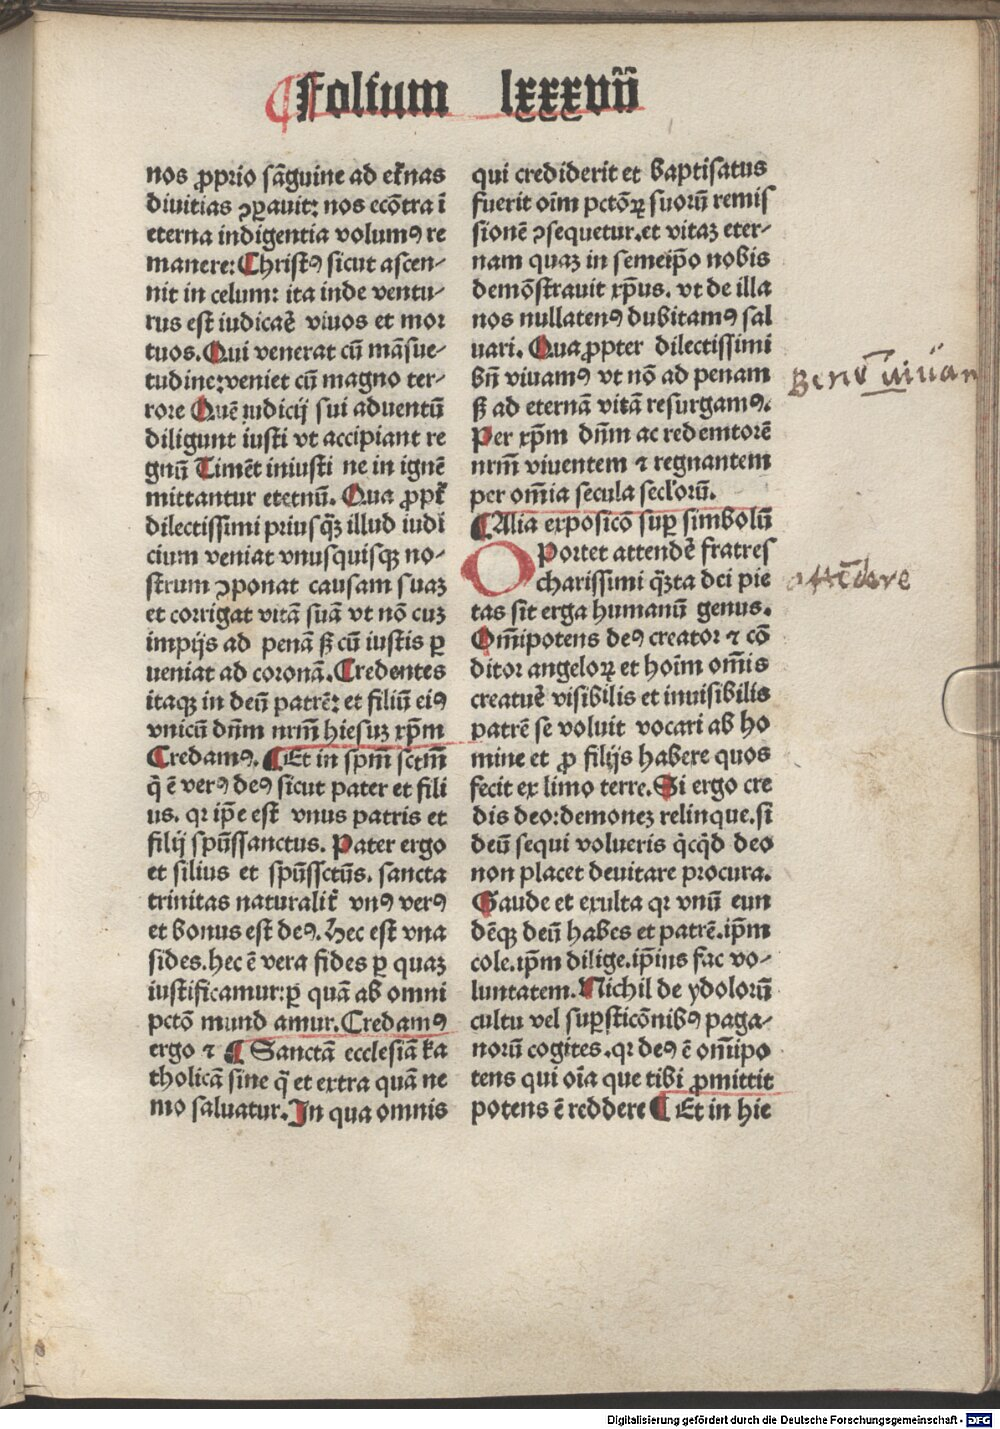 ¶Folium lxxxvii
nos ꝓprio sāguine ad et̄nas
diuitias ꝯꝑauit: nos ecōtra ī
eterna indigentia volumꝰ re
manere: Christꝰ sicut ascen-
nit in celum: ita inde ventu-
rus est iudicar̄ viuos et mor
tuos. Qui venerat cū māsue-
tudine: veniet cū magno ter-
rore Quē iudicij sui aduentū
diligunt iusti vt accipiant re
gnū Timēt iniusti ne in ignē
mittantur etetnū. Qua ꝓpt̄
dilectissimi priusq̄ꝫ illud iudi
cium veniat vnusquisqꝫ no-
strum ꝯponat causam suaꝫ
et corrigat vitā suā vt nō cuꝫ
impijs ad penā sꝫ cū iustis ꝑ
ueniat ad coronā. Credentes
itaqꝫ in deū patrē: et filiū eiꝰ
vnicū dn̄m nrm̄ hiesuꝫ xp̄m
Credamꝰ. ¶Et in spm̄ sctm̄
q̄ ē verꝰ deꝰ sicut pater et fili
us. qr ip̄e est vnus patris et
filij spūssanctus. Pater ergo
et silius et spūssctūs. sancta
trinitas naturalit̄ vnꝰ verꝰ
et bonus est deꝰ. Hec est vna
sides. hec ē vera fides ꝑ quaꝫ
iustificamur: ꝑ quā ab omni
pctō mund amur. Credamꝰ
ergo ⁊ ¶ Sanctā ecclesiā ka
tholicā sine q̄ et extra quā ne
mo saluatur. In qua omnis
qui crediderit et baptisatus
fuerit oīm pctōꝝ suorū remis
sionē ꝯsequetur. et vitaꝫ eter-
nam quaꝫ in semeip̄o nobis
demōstrauit xp̄us. vt de illa
nos nullatenꝰ dubitamꝰ sal
uari. Qua ꝓpter dilectissimi
bn̄ viuamꝰ vt nō ad penam
sꝫ ad eternā vitā resurgamꝰ.
Per xp̄m dn̄m ac redemtorē
nrm̄ viuentem ⁊ regnantem
per om̄ia secula seclōrū.
¶Alia exposicō suꝑ simbolū
OPortet attendēr fratres
charissimi q̄ꝫta dei pie
tas sit erga humanū genus.
Om̄ipotens deꝰ creator ⁊ cō
ditor angeloꝝ et hoīm om̄is
creatuēr visibilis et inuisibilis
patrē se voluit vocari ab ho
mine et ꝓ filijs habere quos
fecit ex limo terre. Si ergo cre
dis deo: demoneꝫ relinque. si
deū sequi volueris q̄cq̄d deo
non placet deuitare procura.
Gaude et exulta qr vnū eun
dēqꝫ deū habes et patrē. ip̄m
cole. ip̄m dilige. ip̄ius fac vo-
luntatem. Nichil de ydolorū
cultu vel suꝑsticōnibꝰ paga-
norū cogites. qr deꝰ ē om̄ipo
tens qui oīa que tibi ꝓmittit
potens ē reddere ¶ Et in hie
Bene viuan
attēdere
Digitalisierung gefördert durch die Deutsche Forschungsgemeinschaft - DFG